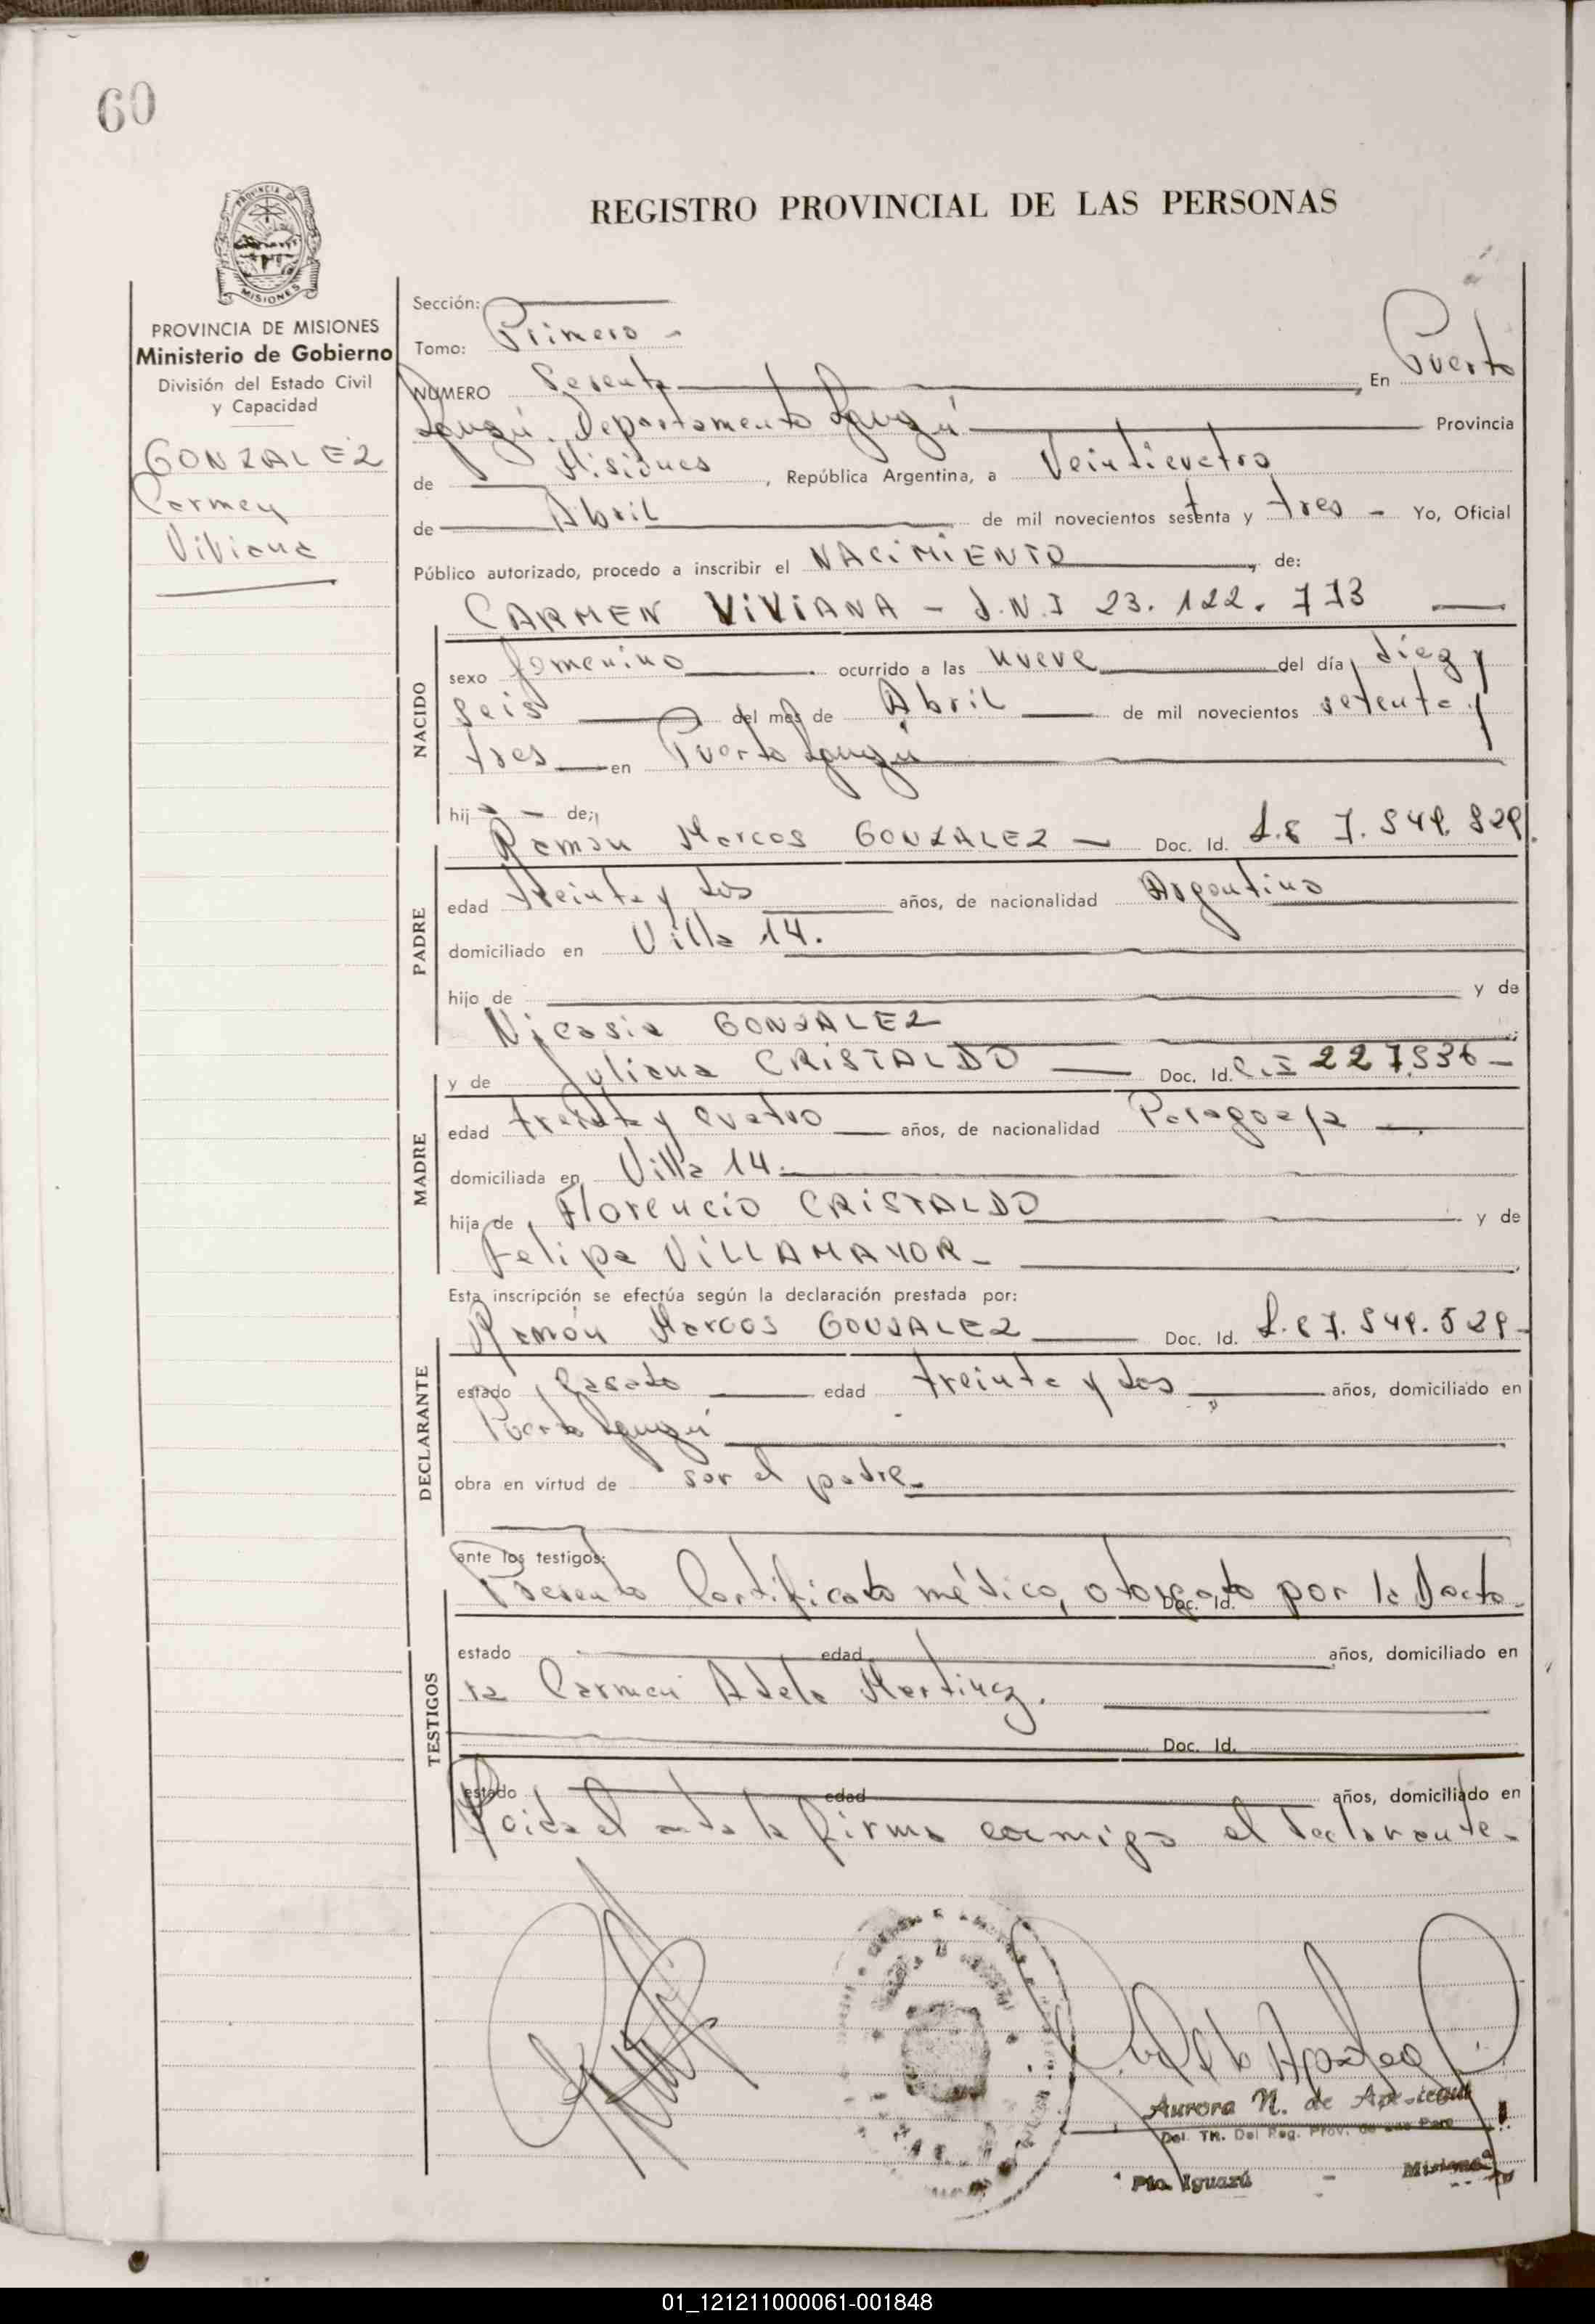 60
REGISTRO PROVINCIAL DE LAS PERSONAS
PROVINCIA DE MISIONES
MISIONES
PROVINCIA DE MISIONES
Ministerio de Gobierno
División del Estado Civil
y Capacidad
GONZALEZ
Carmen
Viviana
Sección:
Tomo: Primero -
NUMERO Sesenta, En Puerto
Iguazú. Departamento Iguazú Provincia
de Misiones, República Argentina, a Veinticuatro
de Abril de mil novecientos setenta y tres - Yo, Oficial
Público autorizado, procedo a inscribir el NACIMIENTO, de:
CARMEN VIVIANA - D.N.I 23.122.773
NACIDO
sexo femenino ocurrido a las nueve del día diez y
seis del mes de Abril de mil novecientos setenta y
tres en Puerto Iguazú
hija - de:
PADRE
Ramón Marcos GONZALEZ - Doc. Id.
edad treinta y dos años, de nacionalidad Argentino
domiciliado en Villa 14.
hijo de y de
Nicasia GONZALEZ
MADRE
y de Juliana CRISTALDO Doc. Id. C.I 227.536 -
edad treinta y cuatro años, de nacionalidad Paraguaya
domiciliada en Villa 14.
hija de Florencio CRISTALDO y de
Felipa VILLAMAYOR -
Esta inscripción se efectúa según la declaración prestada por:
DECLARANTE
Ramón Marcos GONZALEZ Doc. Id. L.E 7.549.529 -
estado Casado edad treinta y dos años, domiciliado en
Puerto Iguazú
obra en virtud de ser el padre -
ante los testigos:
TESTIGOS
Presento Certificado médico, otorgado por la Docto-
Doc. Id.
estado edad años, domiciliado en
ra Carmen Adela Martinez.
Doc. Id.
estado edad años, domiciliado en
Leida el acta la firma conmigo el declarante -
Aurora N. de Apestegui
Del. Tit. Del Reg. Prov. de las Pers
Pto. Iguazú - Misiones
01_121211000061-001848